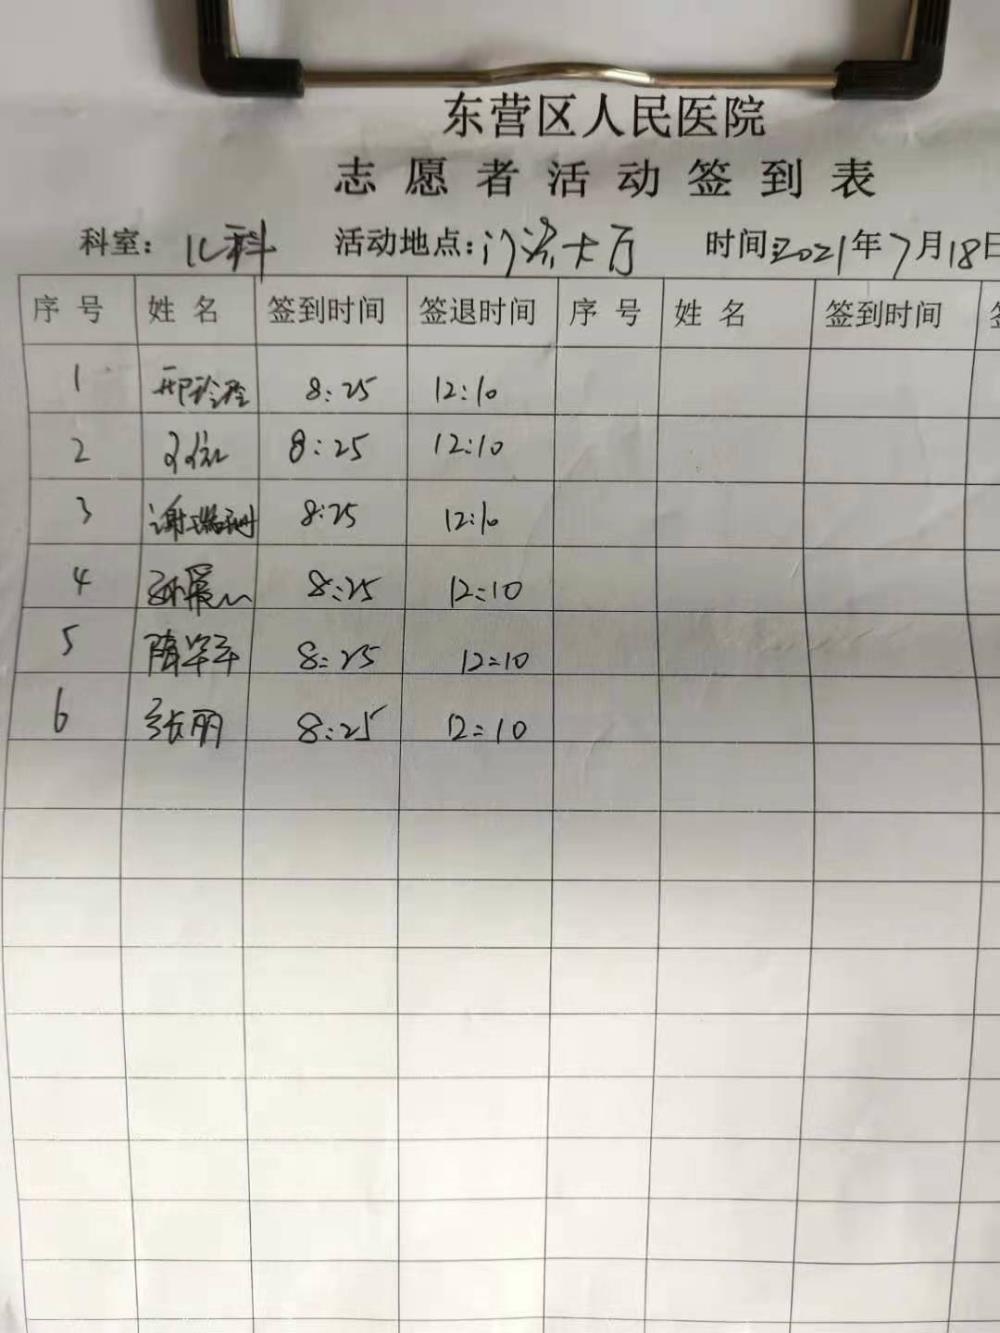 东营区人民医院
志愿者活动签到表
科室：儿科 活动地点：门诊大厅 时间：2021年7月18日
序号 姓名 签到时间 签退时间 序号 姓名 签到时间
1 8:25 12:10
2 8:25 12:10
3 谢 8:25 12:10
4 8:25 12:10
5 隋 8:25 12:10
6 张丽 8:25 12:10